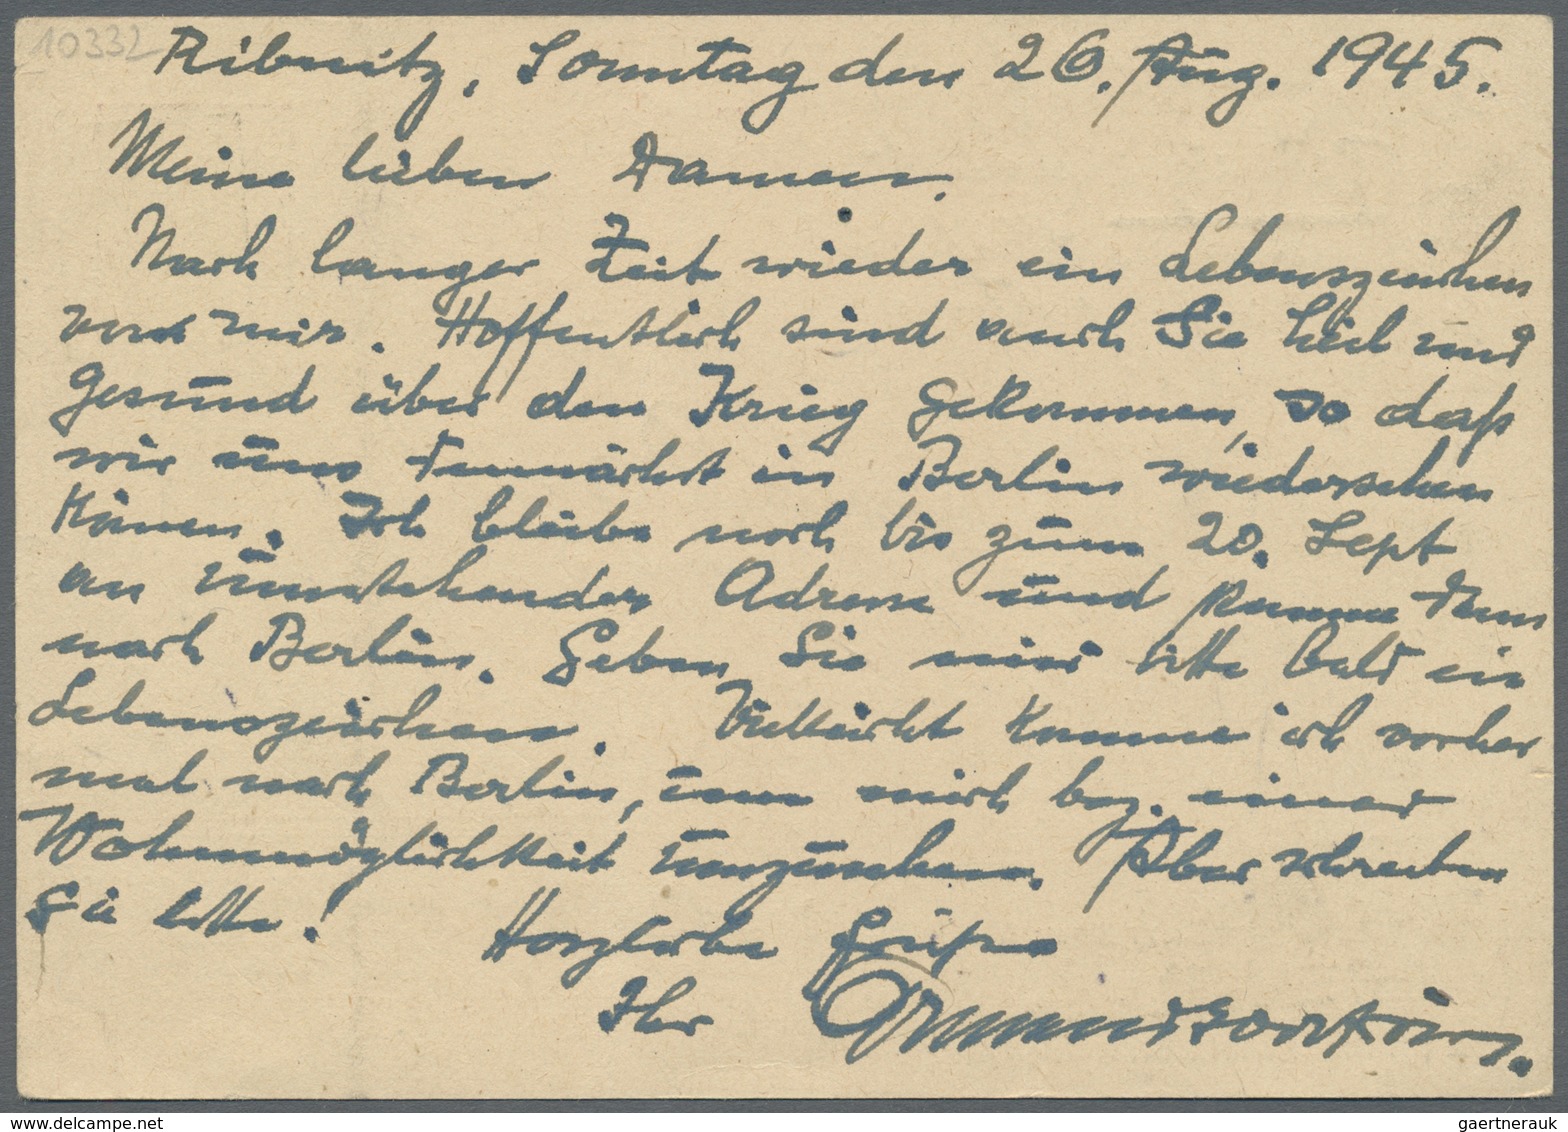 10332
Ribnitz, Sonntag den 26. Aug. 1945.
Meine lieben Damen,
Nach langer Zeit wieder ein Lebenszeichen
von mir. Hoffentlich sind auch Sie heil und
gesund über den Krieg gekommen, so daß
wir uns demnächst in Berlin wiedersehen
können. Ich bleibe noch bis zum 20. Sept
an umstehender Adresse und komme dann
nach Berlin. Geben Sie mir bitte bald ein
Lebenszeichen. Vielleicht komme ich vorher
mal nach Berlin, um mich bez. einer
Wohnmöglichkeit umzusehen. Aber schreiben
Sie bitte!
Herzliche Grüße
Ihr
gaertnerauk